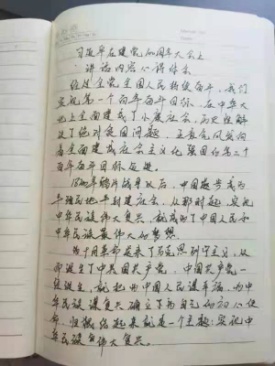 习近平在建党100周年大会上
讲话内容心得体会
经过全党全国人民持续奋斗，我们
实现第一个百年奋斗目标，在中华大
地上全面建成了小康社会，历史性解
决了绝对贫困问题，正意气风发向
着全面建成社会主义现代化强国的第二个
百年奋斗目标迈进。
1840年鸦片战争以后，中国逐步成为
半殖民地半封建社会，从那时起，实现
中华民族伟大复兴，就成为了中国人民和
中华民族最伟大的梦想。
十月革命送来了马克思列宁主义，从
诞生了中国共产党，中国共产党一
经诞生，就把为中国人民谋幸福，为中
华民族谋复兴确立了为自己的初心使
命，归结起来就是一个主题：实现中
华民族伟大复兴。